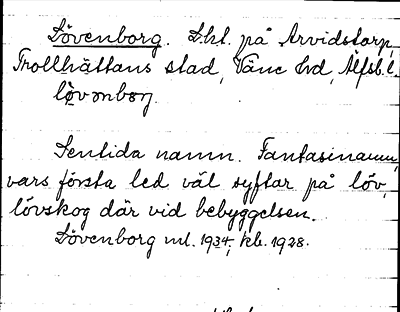 Lövenborg. Lht. på Arvidstorp,
Trollhättans stad, Väne hd, Älfsb. l.
løvənbørj.
Sentida namn. Fantasinamn,
vars första led väl syftar på löv,
lövskog där vid bebyggelsen.
Lövenborg ml. 1934, kb. 1928.